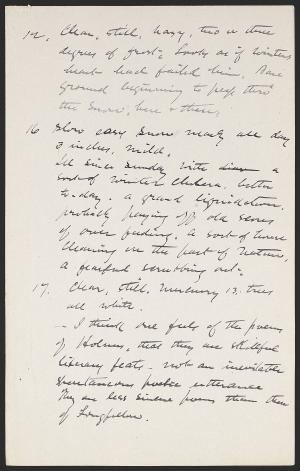 12. Clear, still, hazy, two or three
degrees of frost; looks as if winters
heart had failed him. Bare
ground beginning to peep thro'
the snow, here & there.
16 Slow easy snow nearly all day
3 inches, mild.
Ill since Sunday with a
sort of winter cholera. better
to-day. a grand liquidation,
probably paying off old scores
of over feeding. a sort of house
cleaning on the part of Nature,
a general scrubbing out.
17. Clear, still, mercury 13. trees
all white.
— I think one feels of the poems
of Holmes, that they are skillful
literary feats - not an inevitable
spontaneous poetic utterance
They are less sincere poems than those
of Longfellow.